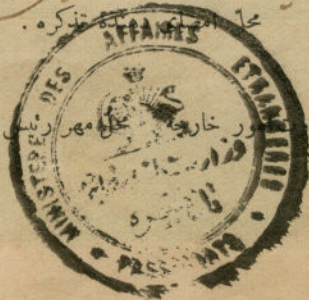 محل امضای دهندۀ تذکره .
MINISTERE DES AFFAIRES ETRANGERES
امور خارجه محل مهر رئیس
وزارت
تذکره
PASSEPORTS